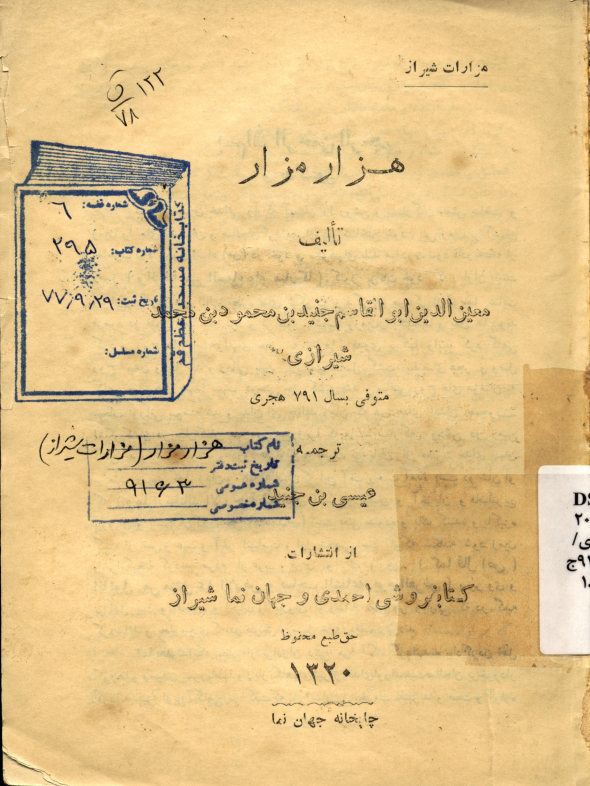 مزارات شیراز
۱۲۲
ق
۷۸
هزار مزار
تألیف
معین الدین ابوالقاسم جنید بن محمود بن محمد
شیرازی
متوفی بسال ۷۹۱ هجری
ترجمه
عیسی بن جنید
از انتشارات
کتابفروشی احمدی و جهان نما شیراز
حق طبع محفوظ
۱۳۲۰
چاپخانه جهان نما
کتابخانه مسجد اعظم قم
شماره قفسه: ۶
شماره کتاب: ۲۹۵
تاریخ ثبت: ۷۷/۹/۲۹
شماره مسلسل:
نام کتاب هزار مزار (مزارات شیراز)
تاریخ ثبت دفتر
شماره عمومی ۹۱۶۳
شماره خصوصی
DS